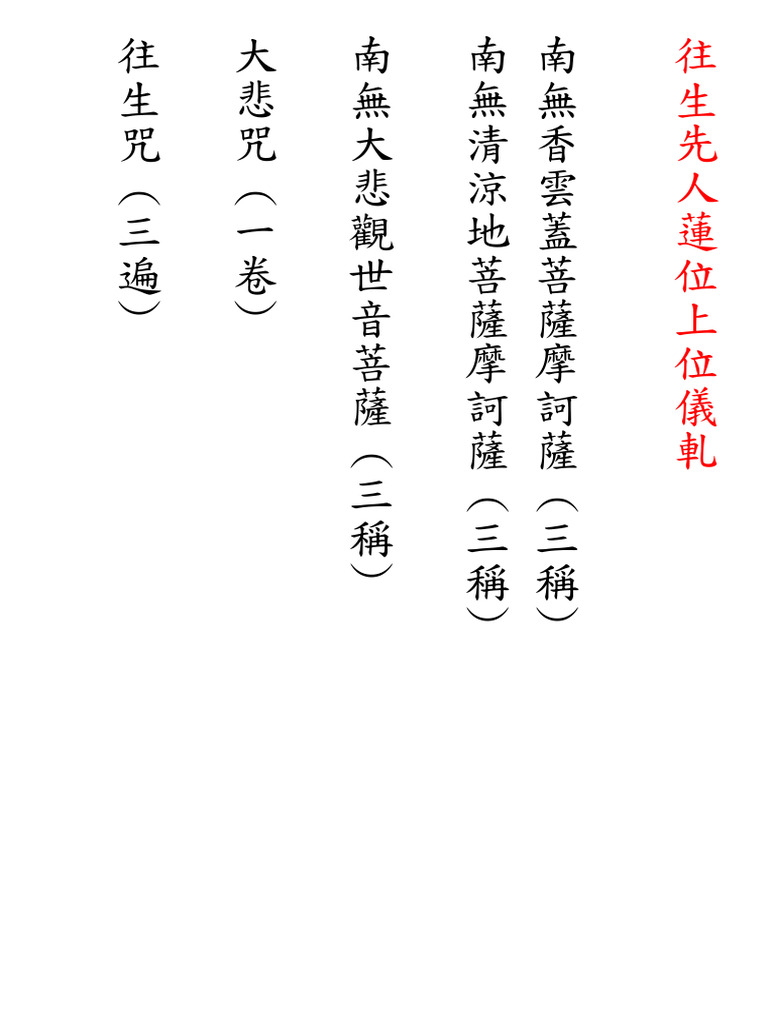 往生先人蓮位上位儀軌
南無香雲蓋菩薩摩訶薩（三稱）
南無清涼地菩薩摩訶薩（三稱）
南無大悲觀世音菩薩（三稱）
大悲咒（一卷）
往生咒（三遍）